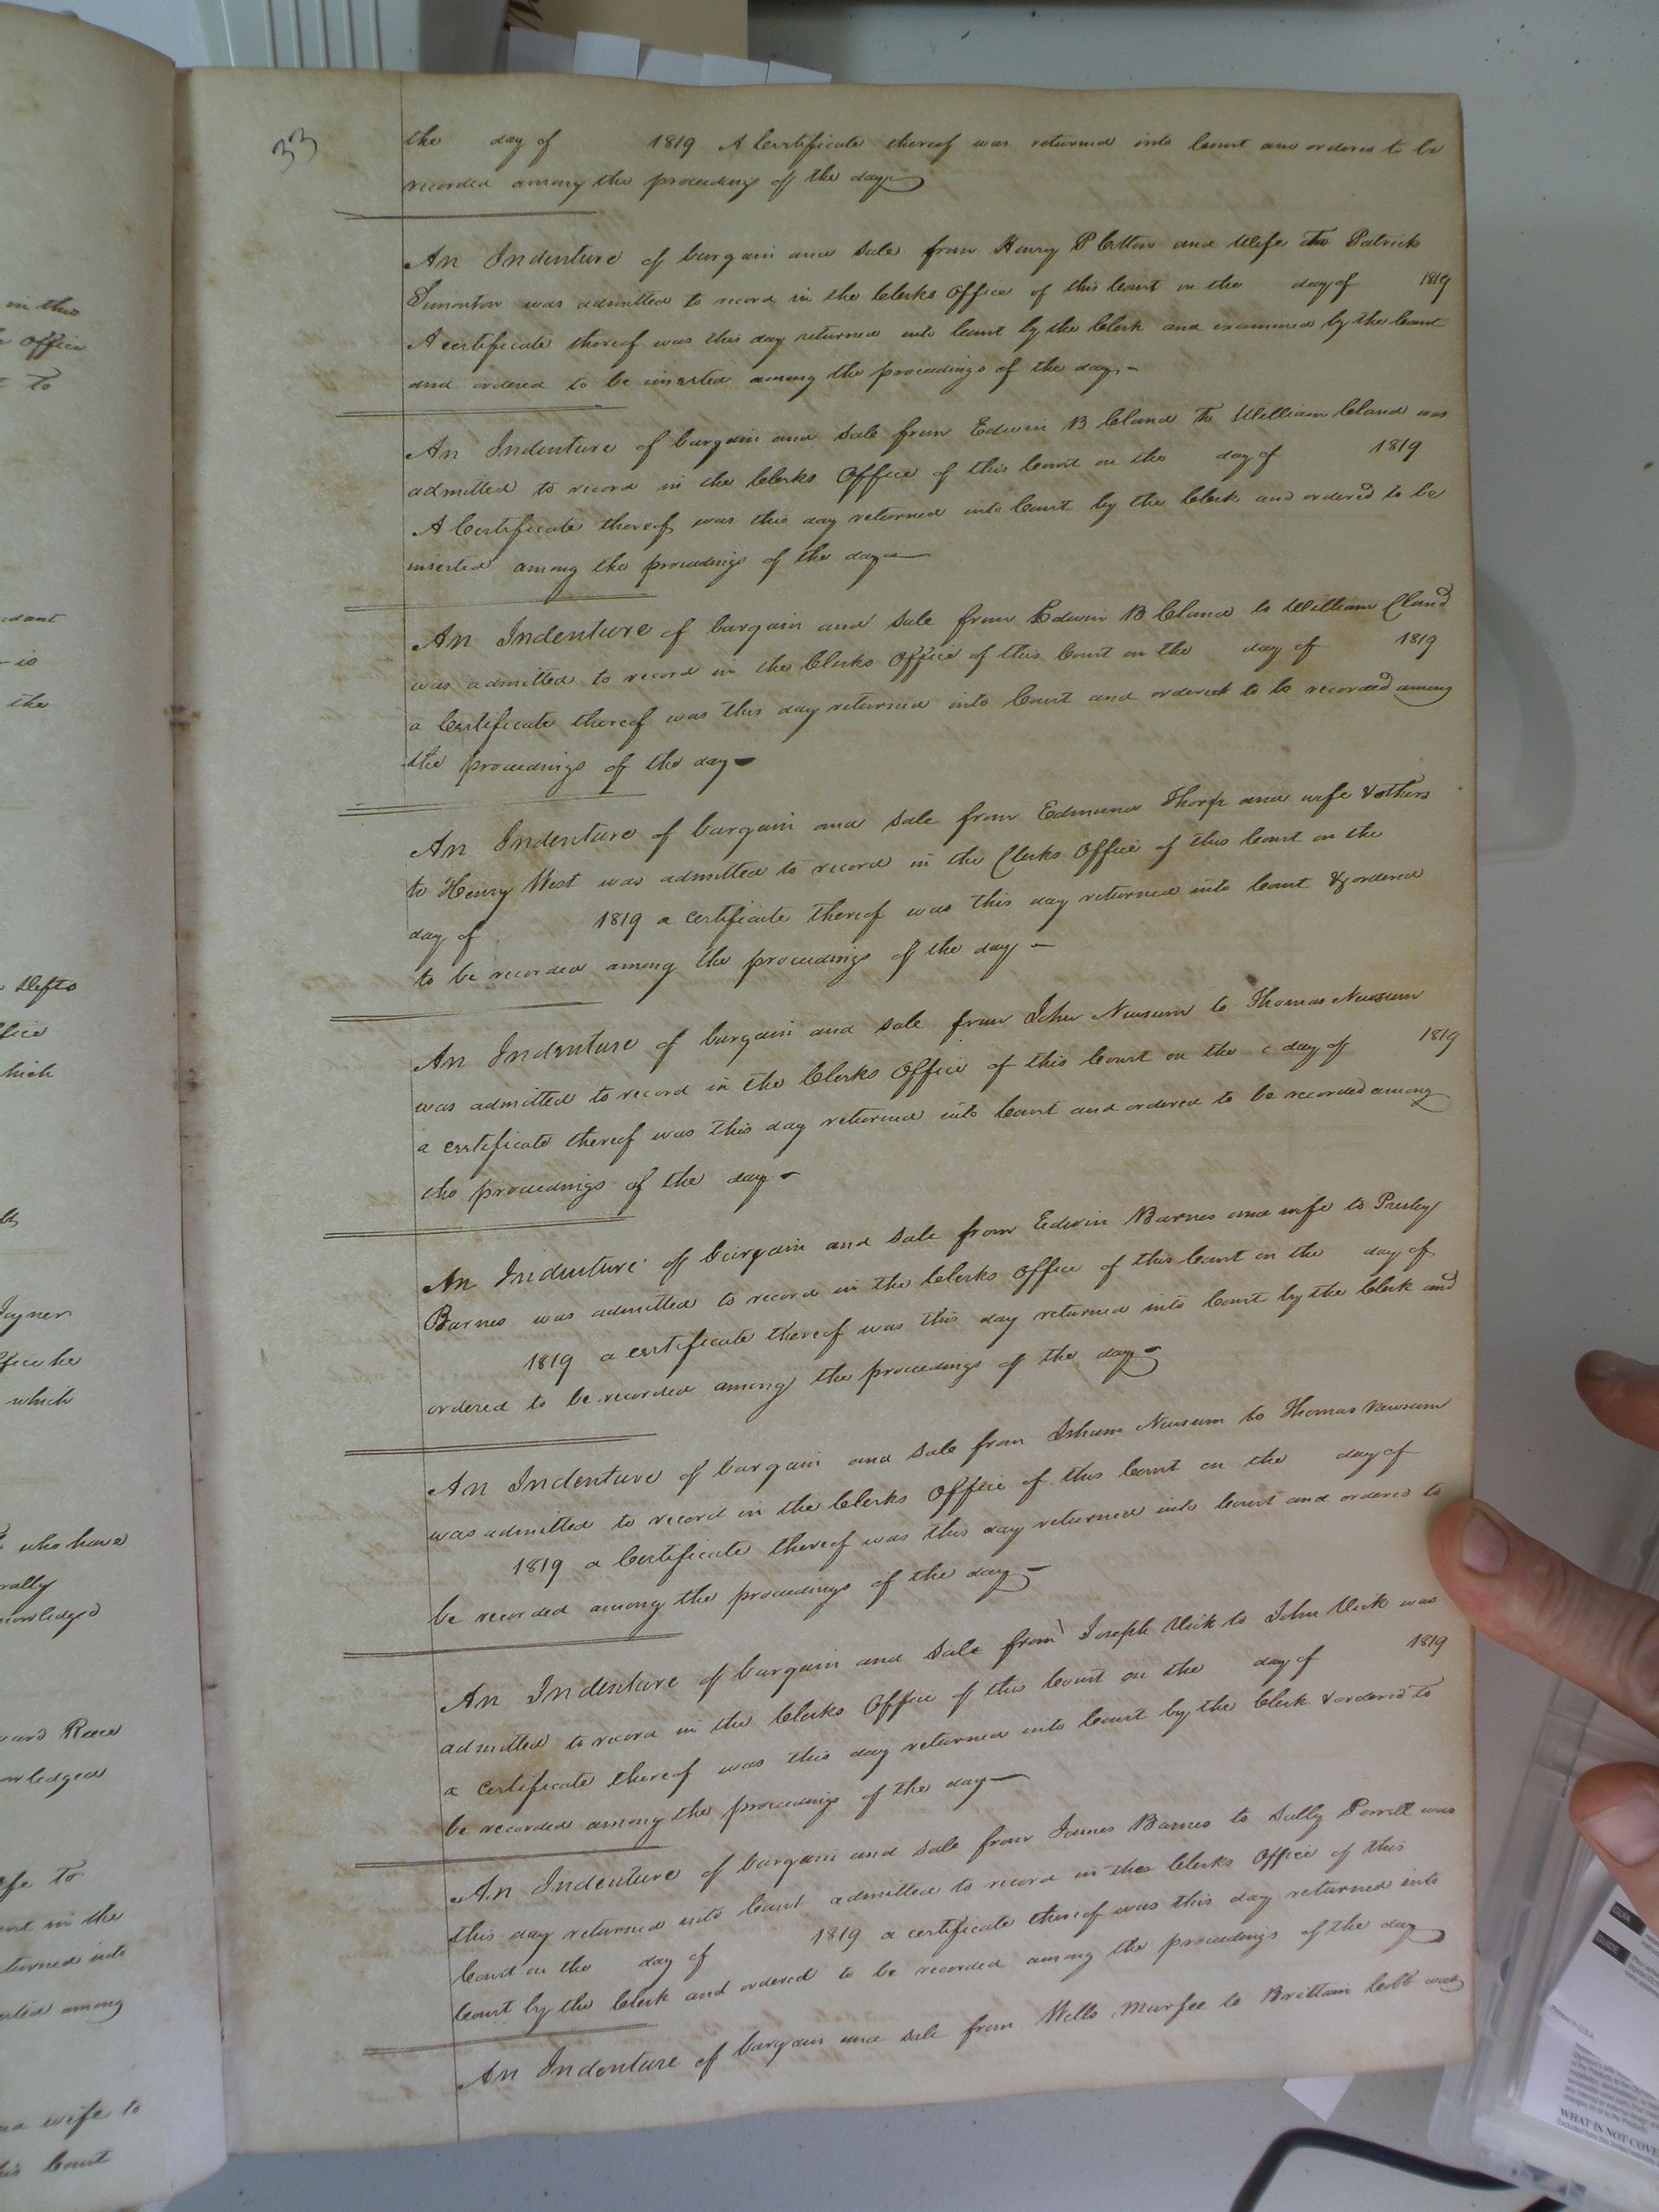 33
the day of 1819 A Certificate thereof was returned into Court and ordered to be
recorded among the proceedings of the day
An Indenture of bargain and Sale from Henry P and Wife To Patrick
Simonton was admitted to record in the Clerks Office of this Court on the day of 1819
A certificate thereof was this day returned into Court by the Clerk and examined by the Court
and ordered to be inserted among the proceedings of the day
An Indenture of bargain and Sale from Edwin B Claud To William Claud was
admitted to record in the Clerks Office of this Court on the day of 1819
A Certificate thereof was this day returned into Court by the Clerk and ordered to be
inserted among the proceedings of the day
An Indenture of bargain and Sale from Edwin B Claud to William Claud
was admitted to record in the Clerks Office of this Court on the day of 1819
a Certificate thereof was this day returned into Court and ordered to be recorded among
the proceedings of the day
An Indenture of bargain and sale from Edmund Thorp and wife & others
to Henry West was admitted to record in the Clerks Office of this Court on the
day of 1819 a certificate thereof was this day returned into Court & ordered
to be recorded among the proceedings of the day
An Indenture of bargain and sale from John Newsum to Thomas Newsum
was admitted to record in the Clerks Office of this Court on the day of 1819
a certificate thereof was this day returned into Court and ordered to be recorded among
the proceedings of the day
An Indenture of bargain and sale from Edwin Barnes and wife to Presley
Barnes was admitted to record in the Clerks Office of this Court on the day of
1819 a certificate thereof was this day returned into Court by the Clerk and
ordered to be recorded among the proceedings of the day
An Indenture of bargain and sale from Isham Newsum to Thomas Newsum
was admitted to record in the Clerks Office of this Court on the day of
1819 a Certificate thereof was this day returned into Court and ordered to
be recorded among the proceedings of the day
An Indenture of bargain and Sale from Joseph Vick to John Vick was
admitted to record in the Clerks Office of this Court on the day of 1819
a Certificate thereof was this day returned into Court by the Clerk & ordered to
be recorded among the proceedings of the day
An Indenture of bargain and sale from James Barnes to Sally Porrell was
this day returned into Court admitted to record in the Clerks Office of this
Court on the day of 1819 a certificate thereof was this day returned into
Court by the Clerk and ordered to be recorded among the proceedings of the day
An Indenture of bargain and sale from Wells Murfee to Brittain Cobb was
in this
Office
To
is
the
Defts
which
Joyner
which
who have
and Rose
to
in the
returned into
among
wife to
Court
WHAT IS NOT COVE